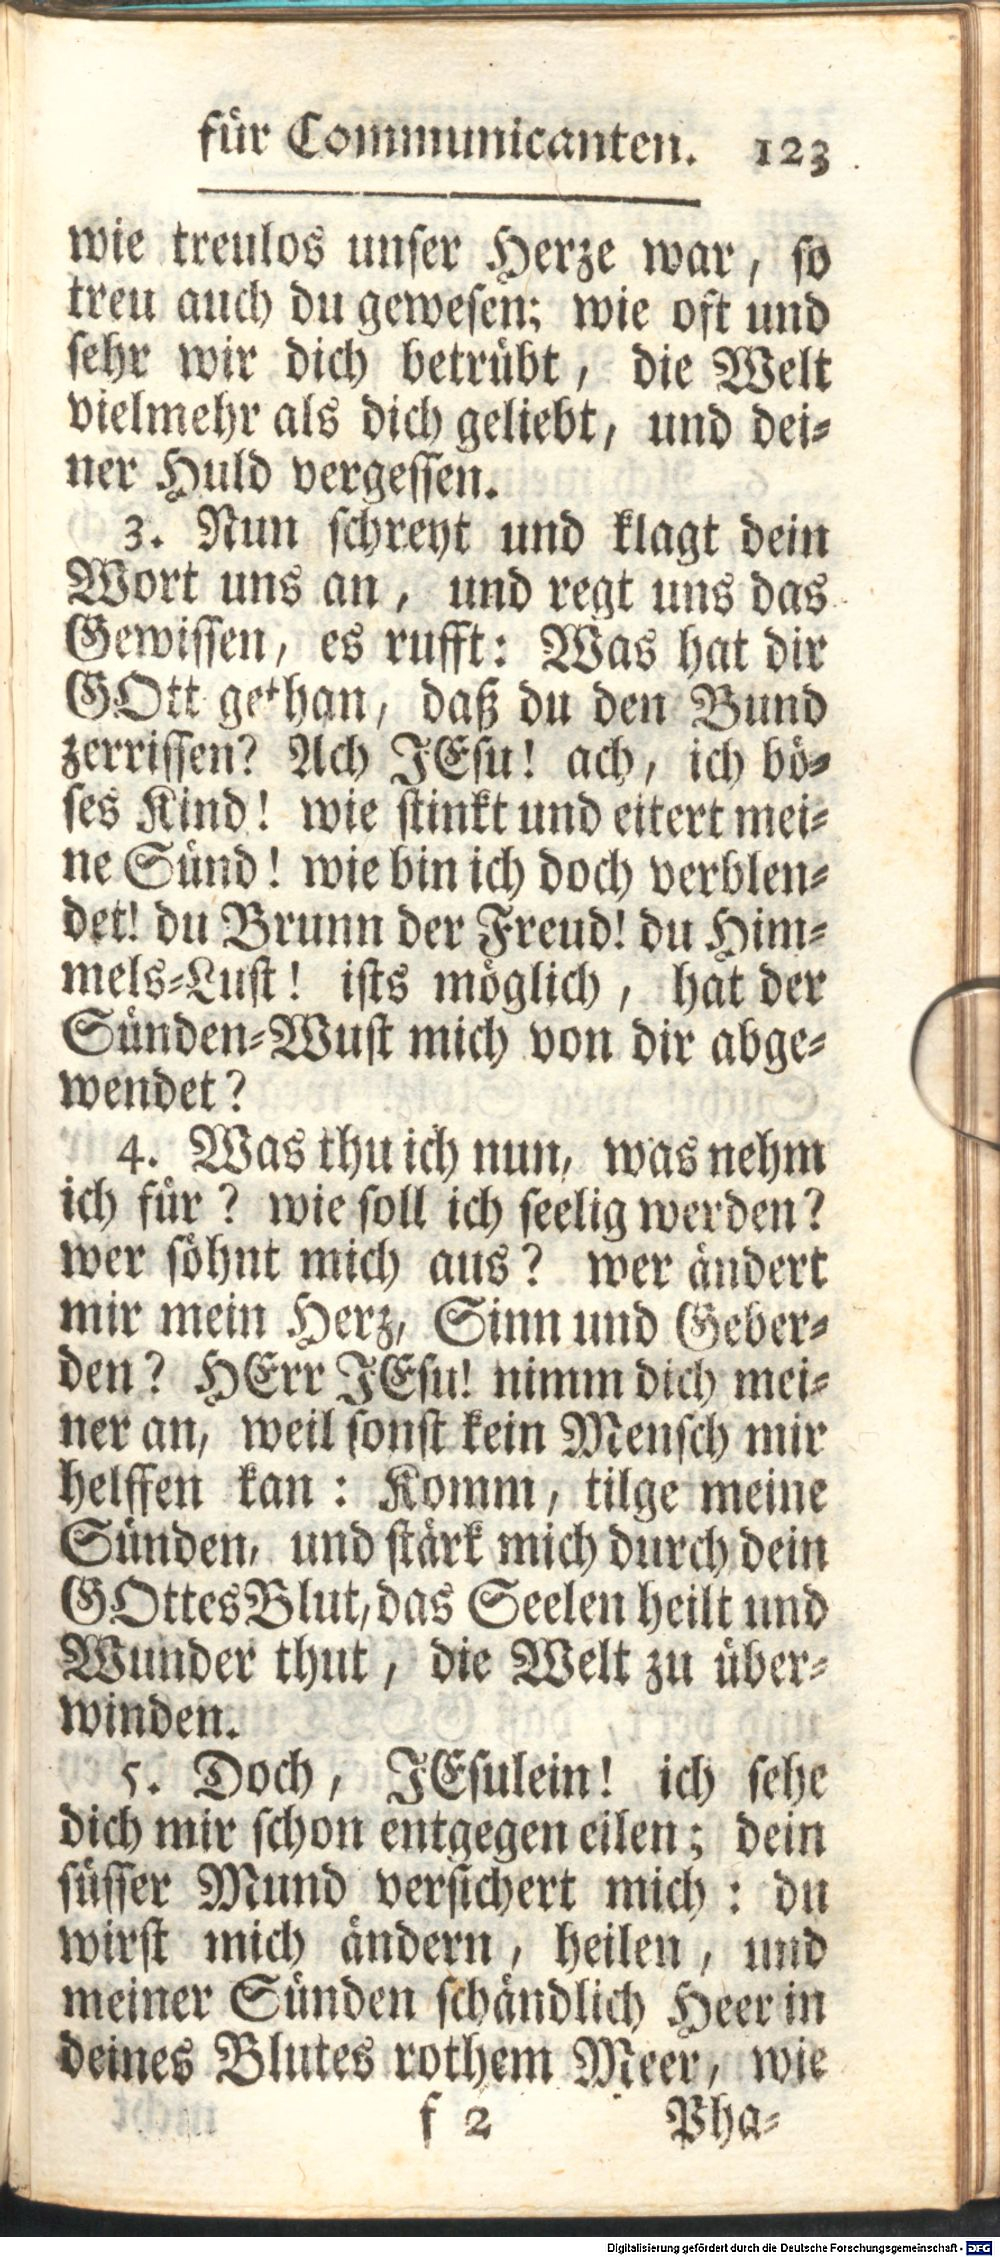 für Communicanten. 123
wie treulos unser Herze war, so
treu auch du gewesen; wie oft und
sehr wir dich betrübt, die Welt
vielmehr als dich geliebt, und dei-
ner Huld vergessen.
3. Nun schreyt und klagt dein
Wort uns an, und regt uns das
Gewissen, es rufft: Was hat dir
GOtt gethan, daß du den Bund
zerrissen? Ach JEsu! ach, ich bö-
ses Kind! wie stinkt und eitert mei-
ne Sünd! wie bin ich doch verblen-
det! du Brunn der Freud! du Him-
mels-Lust! ists möglich, hat der
Sünden-Wust mich von dir abge-
wendet?
4. Was thu ich nun, was nehm
ich für? wie soll ich seelig werden?
wer söhnt mich aus? wer ändert
mir mein Herz, Sinn und Geber-
den? HErr JEsu! nimm dich mei-
ner an, weil sonst kein Mensch mir
helffen kan: Komm, tilge meine
Sünden, und stärk mich durch dein
GOttesBlut, das Seelen heilt und
Wunder thut, die Welt zu über-
winden.
5. Doch, JEsulein! ich sehe
dich mir schon entgegen eilen; dein
süsser Mund versichert mich: du
wirst mich ändern, heilen, und
meiner Sünden schändlich Heer in
deines Blutes rothem Meer, wie
f 2 Pha-
Digitalisierung gefördert durch die Deutsche Forschungsgemeinschaft - DFG